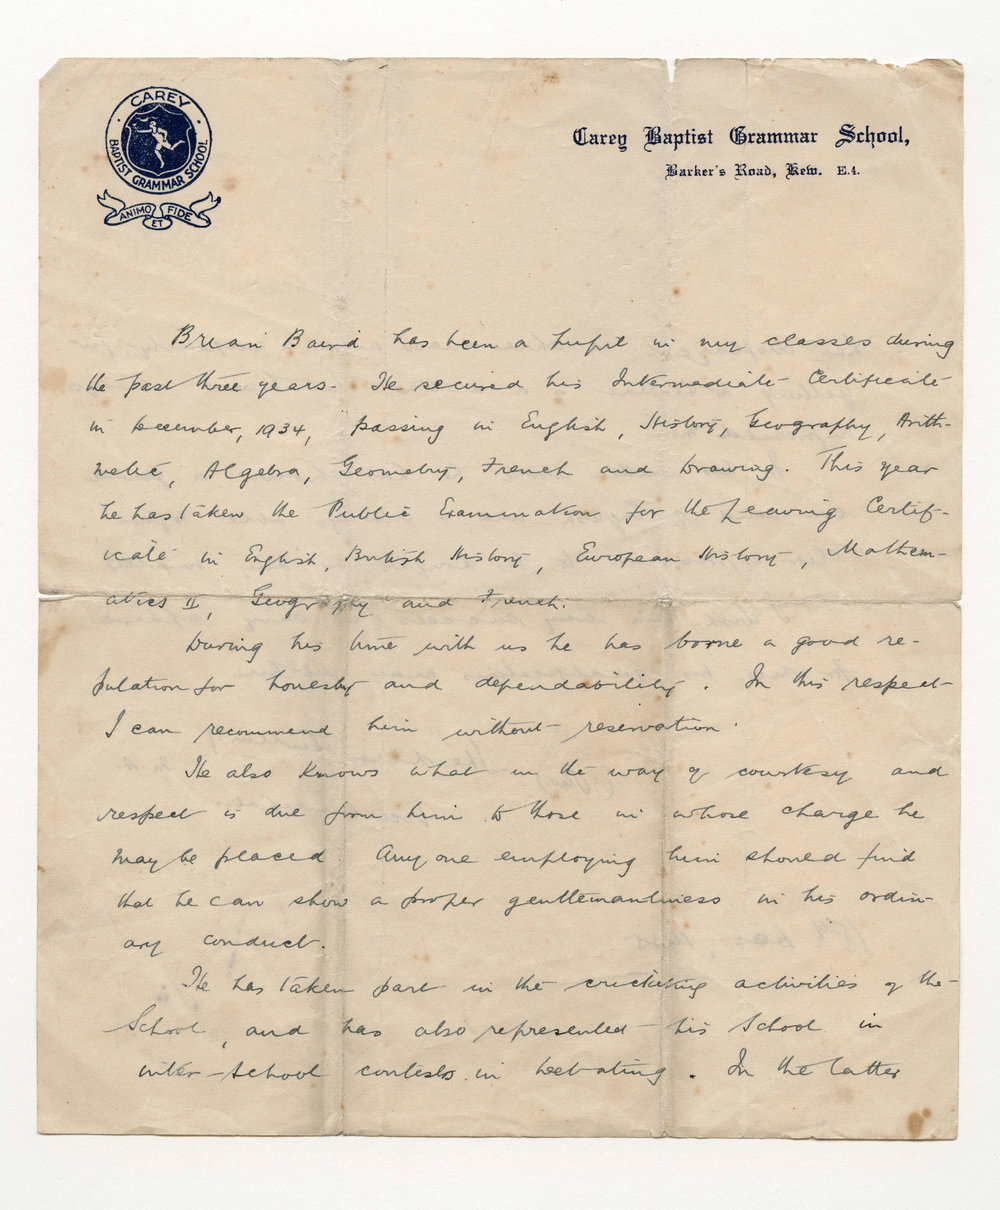 CAREY
BAPTIST GRAMMAR SCHOOL
ANIMO ET FIDE
Carey Baptist Grammar School,
Barker's Road, Kew. E.4.
Brian Baird has been a pupil in my classes during
the past three years. He secured his Intermediate Certificate
in December, 1934, passing in English, History, Geography, Arith-
metic, Algebra, Geometry, French and Drawing. This year
he has taken the Public Examination for the Leaving Certif-
icate in English, British History, European History, Mathem-
atics II, Geography and French.
During his time with us he has borne a good re-
putation for honesty and dependability. In this respect
I can recommend him without reservation.
He also knows what in the way of courtesy and
respect is due from him to those in whose charge he
may be placed Anyone employing him should find
that he can show a proper gentlemanliness in his ordin-
ary conduct.
He has taken part in the cricketing activities of the
School, and has also represented his School in
inter-school contests in debating. In the latter